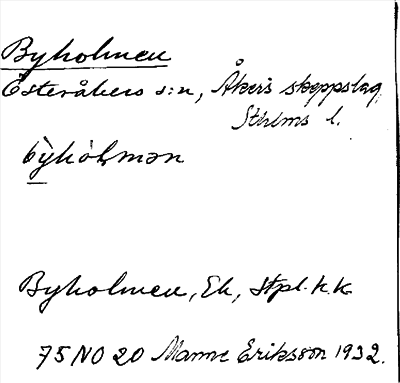 Byholmen
Österåkers s:n, Åkers skeppslag,
Sthlms l.
bỳhòlmən
Byholmen, Ek, Stpl. h.k.
75 NO 20 Manne Eriksson 1932.